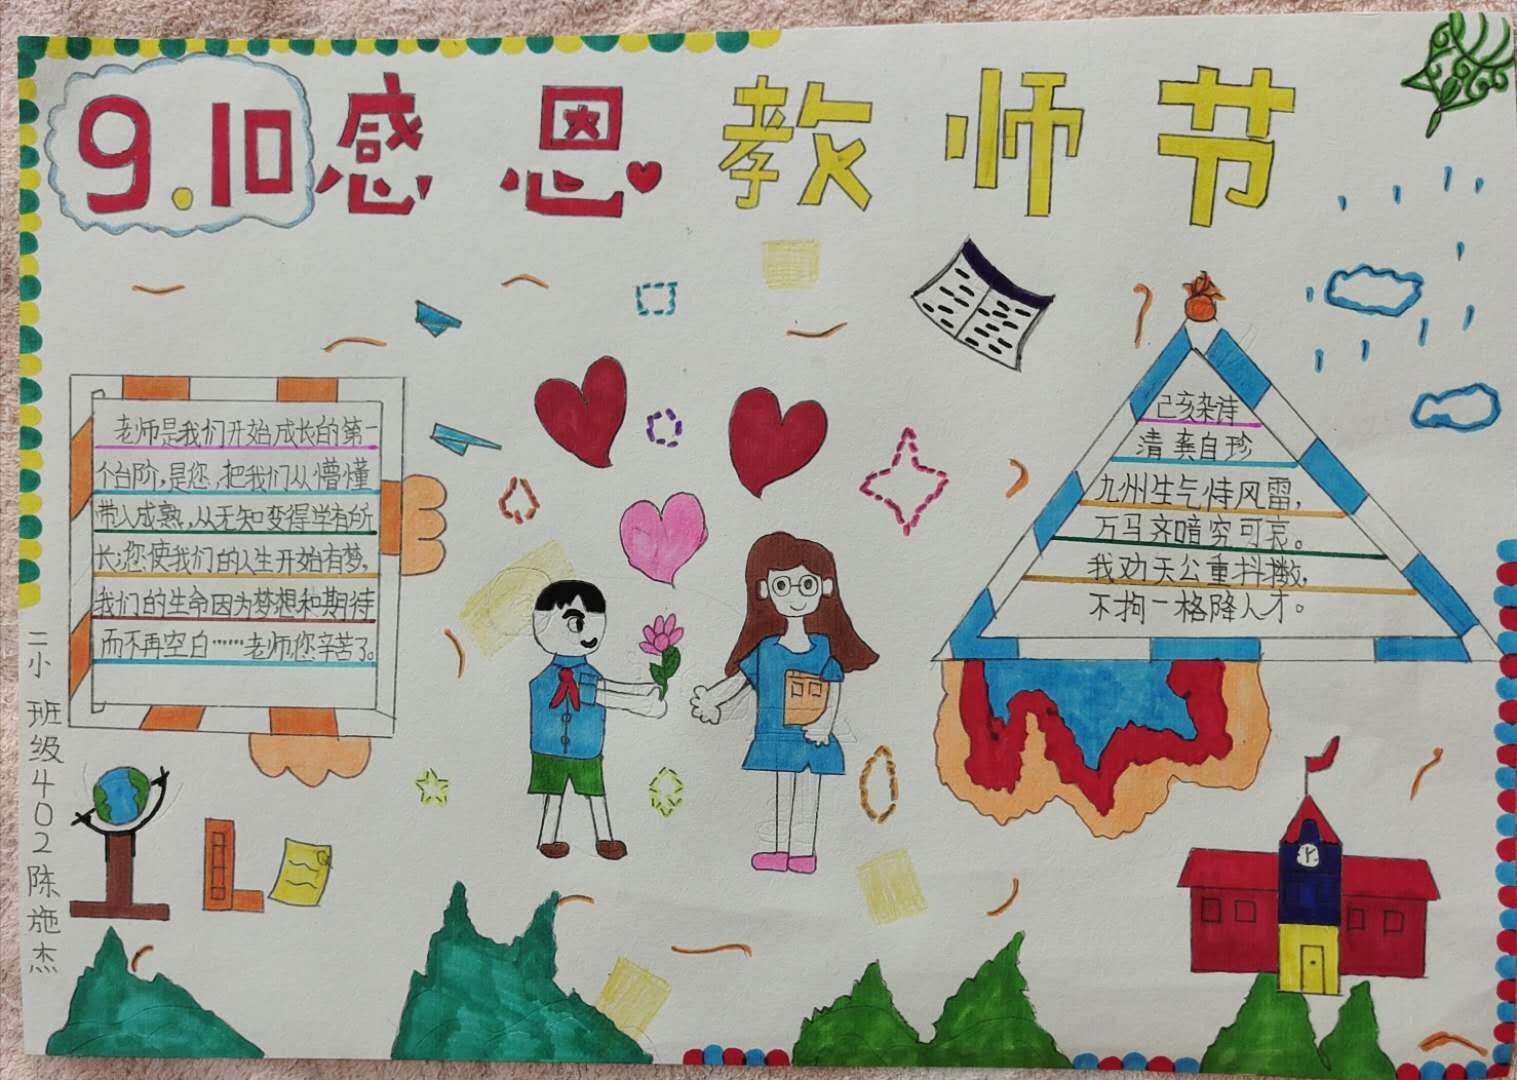 9.10感恩教师节
老师是我们开始成长的第一
个台阶,是您,把我们从懵懂
带入成熟,从无知变得学有所
长;您使我们的人生开始有梦,
我们的生命因为梦想和期待
而不再空白……老师,您辛苦了。
己亥杂诗
清 龚自珍
九州生气恃风雷,
万马齐喑究可哀。
我劝天公重抖擞,
不拘一格降人才。
二小 班级402陈施杰